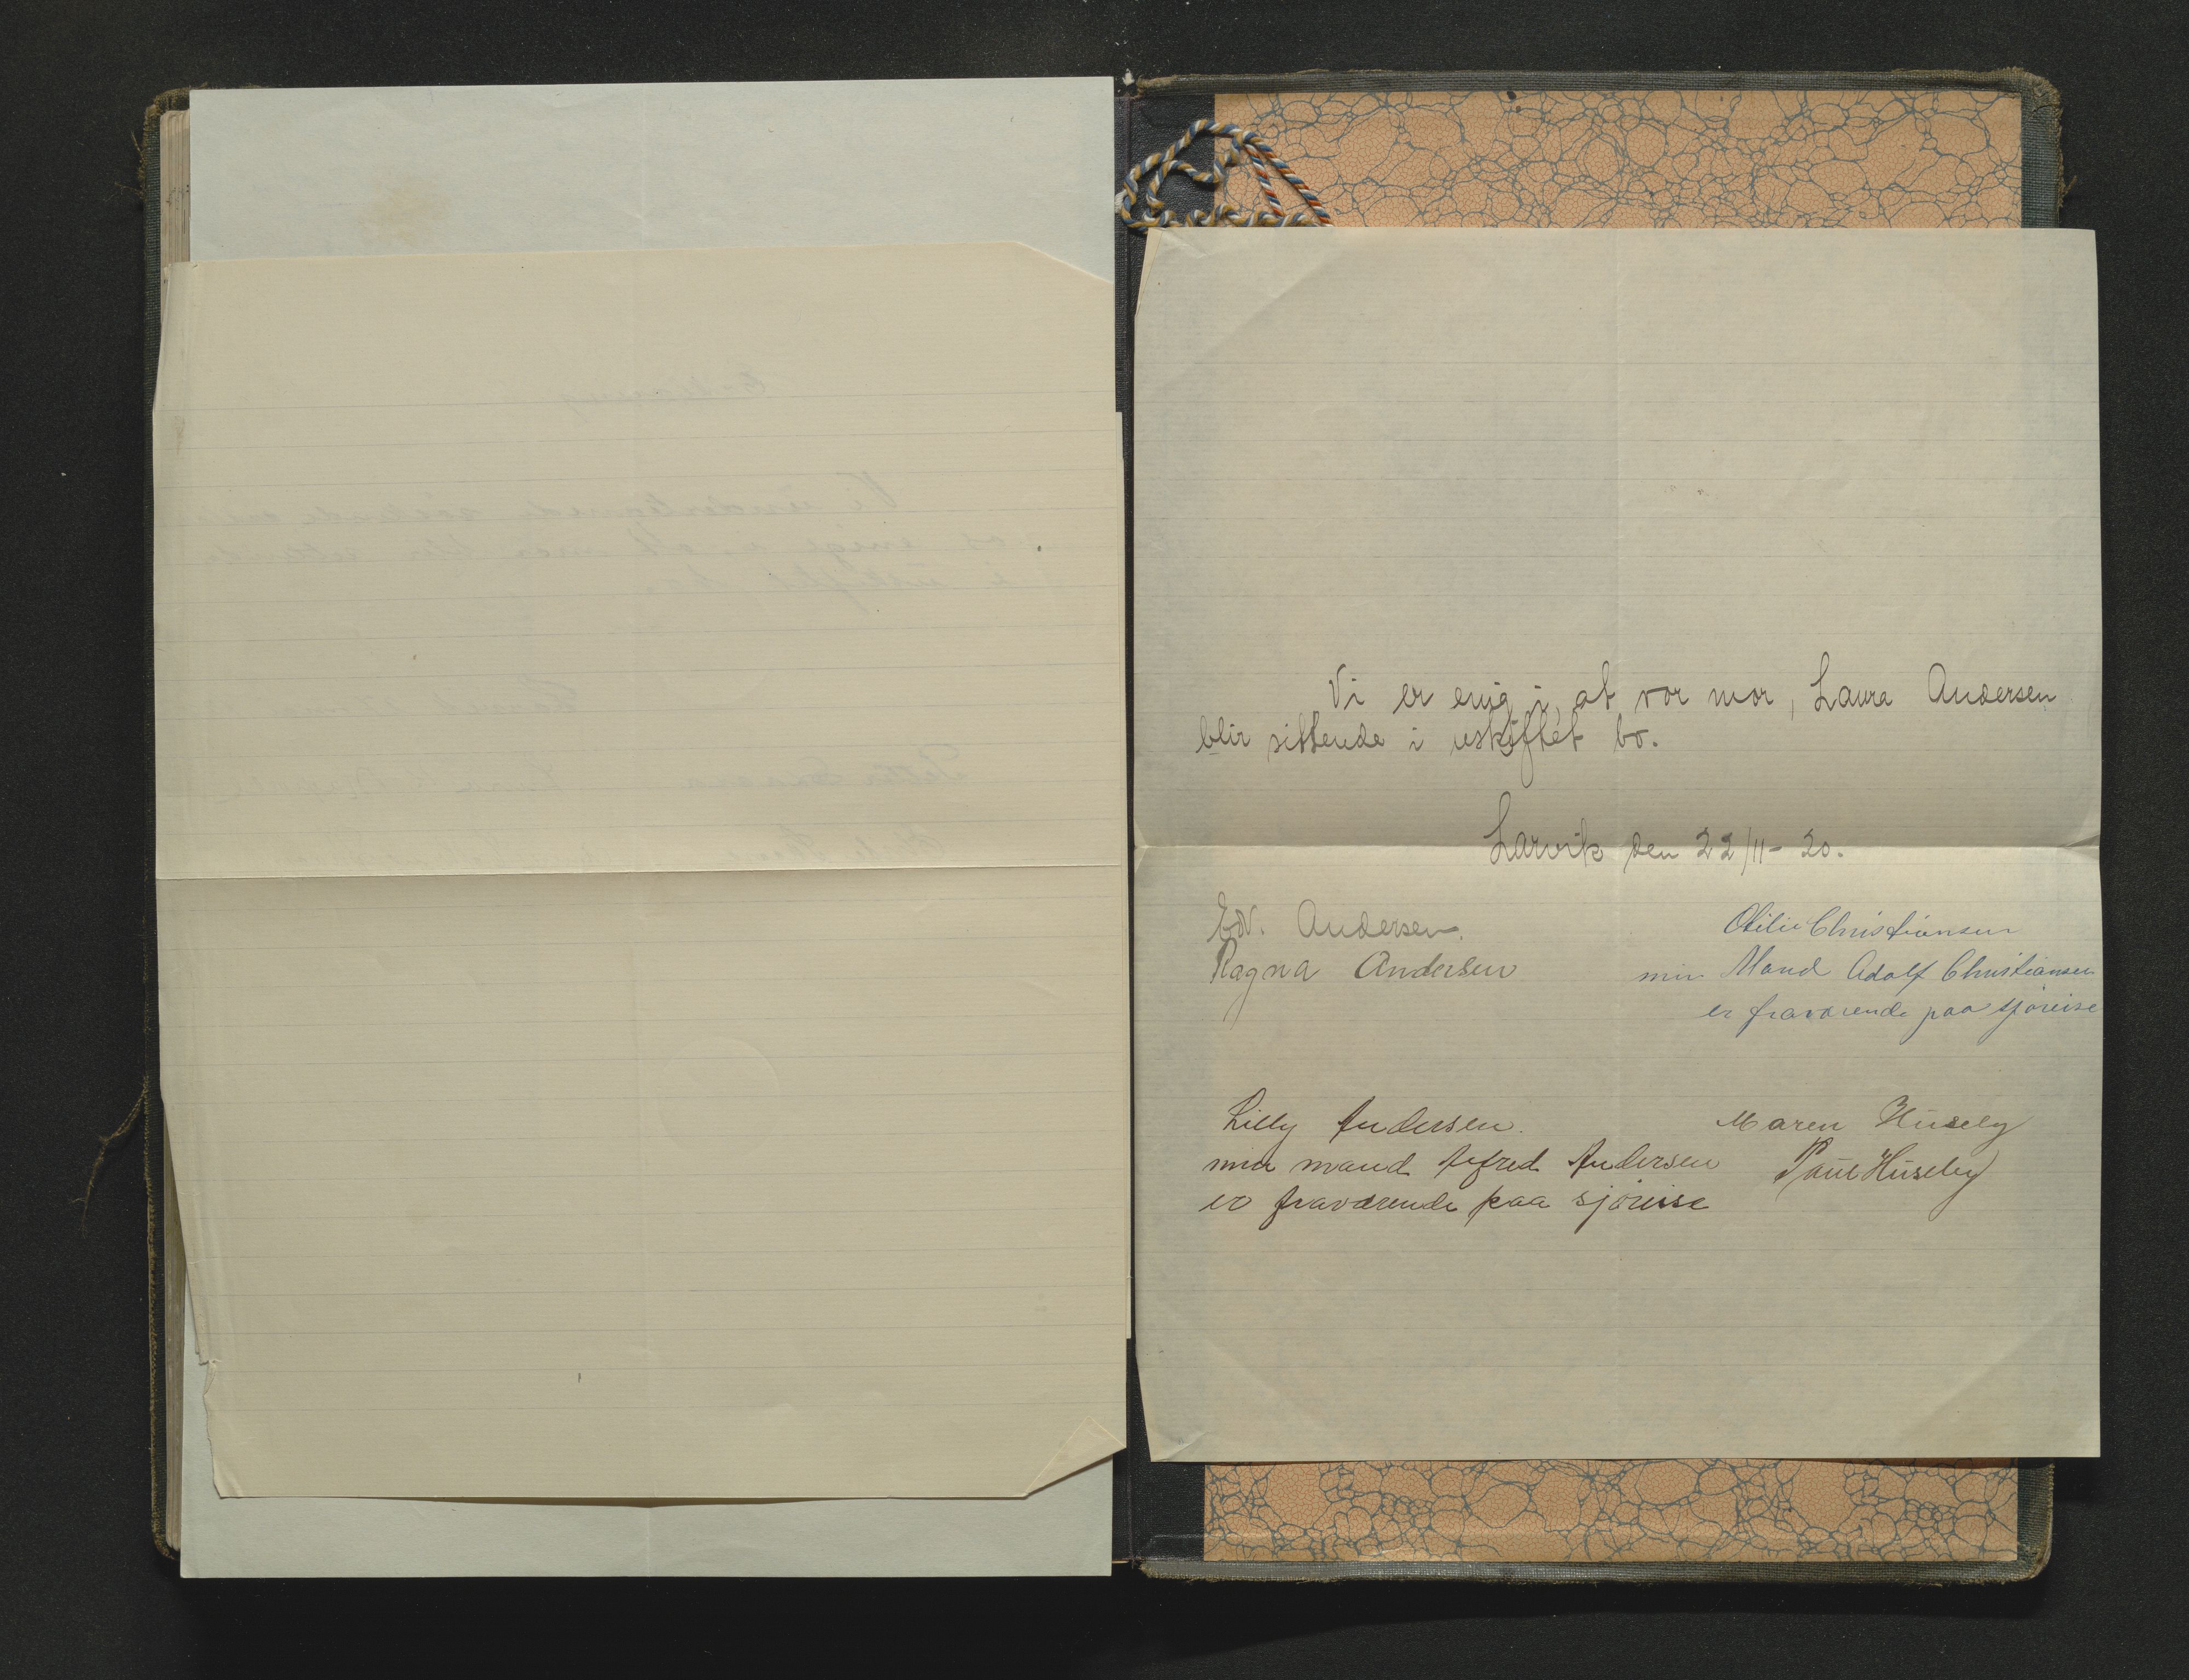 Vi er enig i, at vor mor, Laura Andersen
blir sittende i uskiftet bo.
Larvik den 22/11-20.
Edv. Andersen.
Ragna Andersen
Otilie Christiansen
min Mand Adolf Christiansen
er fraværende paa sjöreise
Lilly Andersen.
min mand Alfred Andersen
er fraværende paa sjöreise
Maren Huseby
Paul Huseby